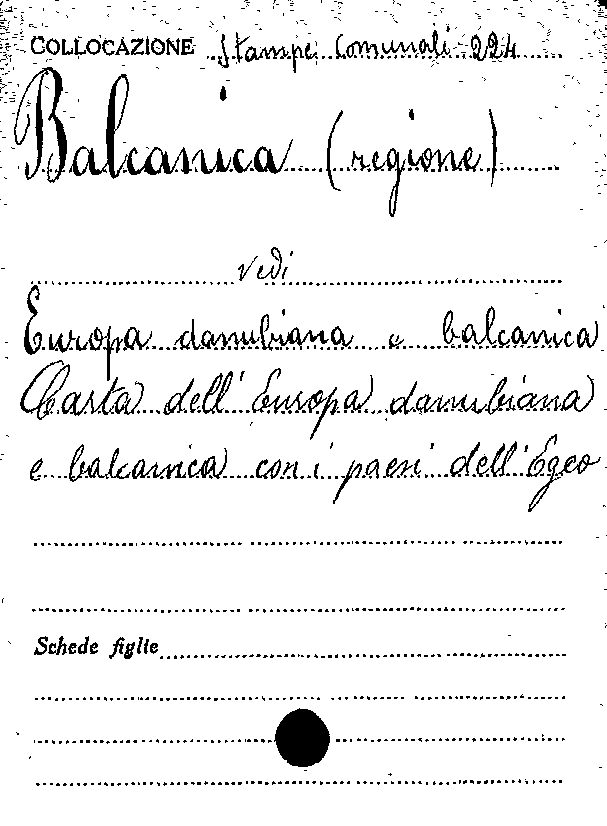 COLLOCAZIONE Stampe Comunali 224
Balcanica (regione)
vedi
Europa danubiana e balcanica
Carta dell'Europa danubiana
e balcanica con i paesi dell'Egeo
Schede figlie